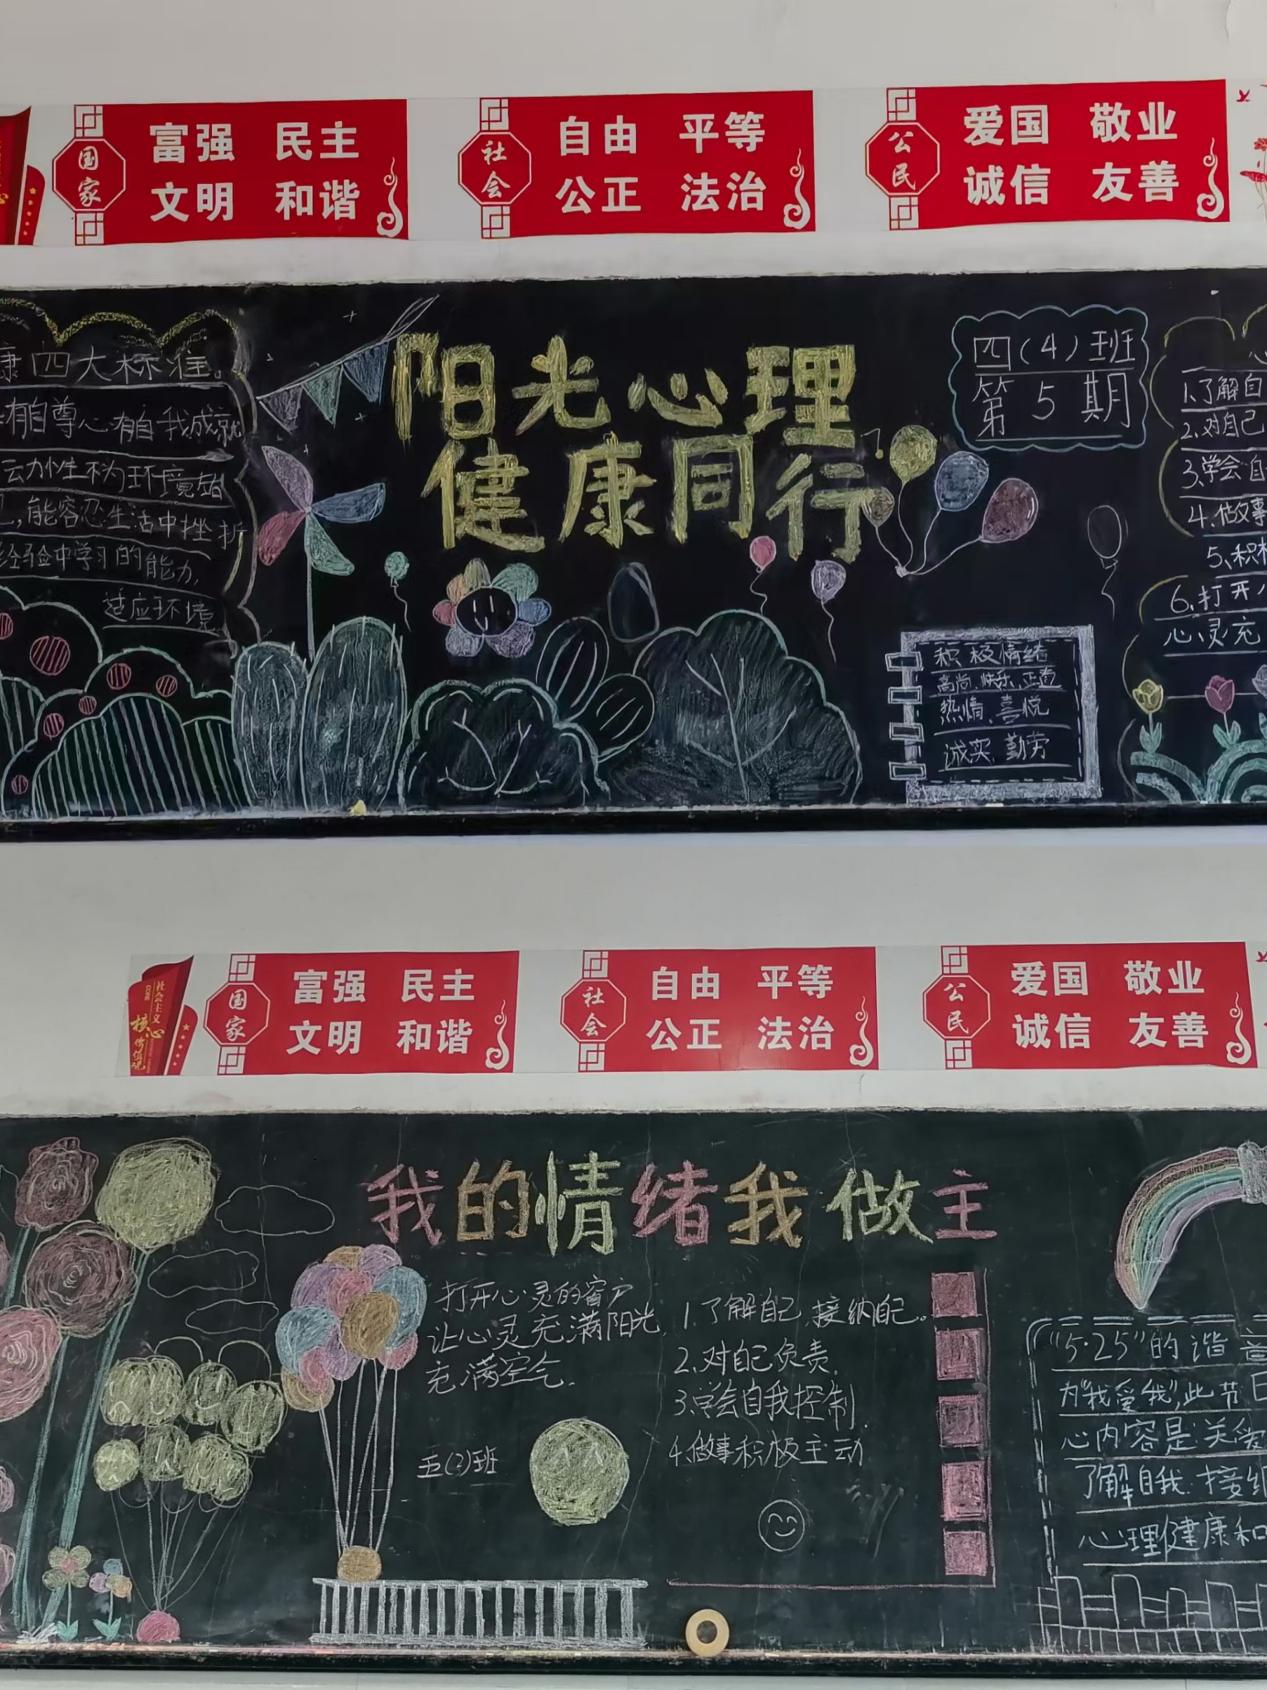 国家
富强 民主
文明 和谐
社会
自由 平等
公正 法治
公民
爱国 敬业
诚信 友善
康四大标准。
有自尊心有自我成就
能容忍生活中挫折
经验中学习的能力,
适应环境
阳光心理
健康同行
四(4)班
第5期
积极情绪
高尚.快乐.正直
热情、喜悦
诚实.勤劳
1.了解自
2.对自己
3.学会自
4.做事
5、积极
6.打开
心灵充
社会主义
核心
价值观
国家
富强 民主
文明 和谐
社会
自由 平等
公正 法治
公民
爱国 敬业
诚信 友善
我的情绪我做主
打开心灵的窗户
让心灵充满阳光
充满空气.
五(2)班
1.了解自己.接纳自己。
2.对自己负责.
3.学会自我控制.
4.做事积极主动
"5·25"的谐音
为"我爱我",此节日
心内容是关爱
了解自我.接纳
心理健康和